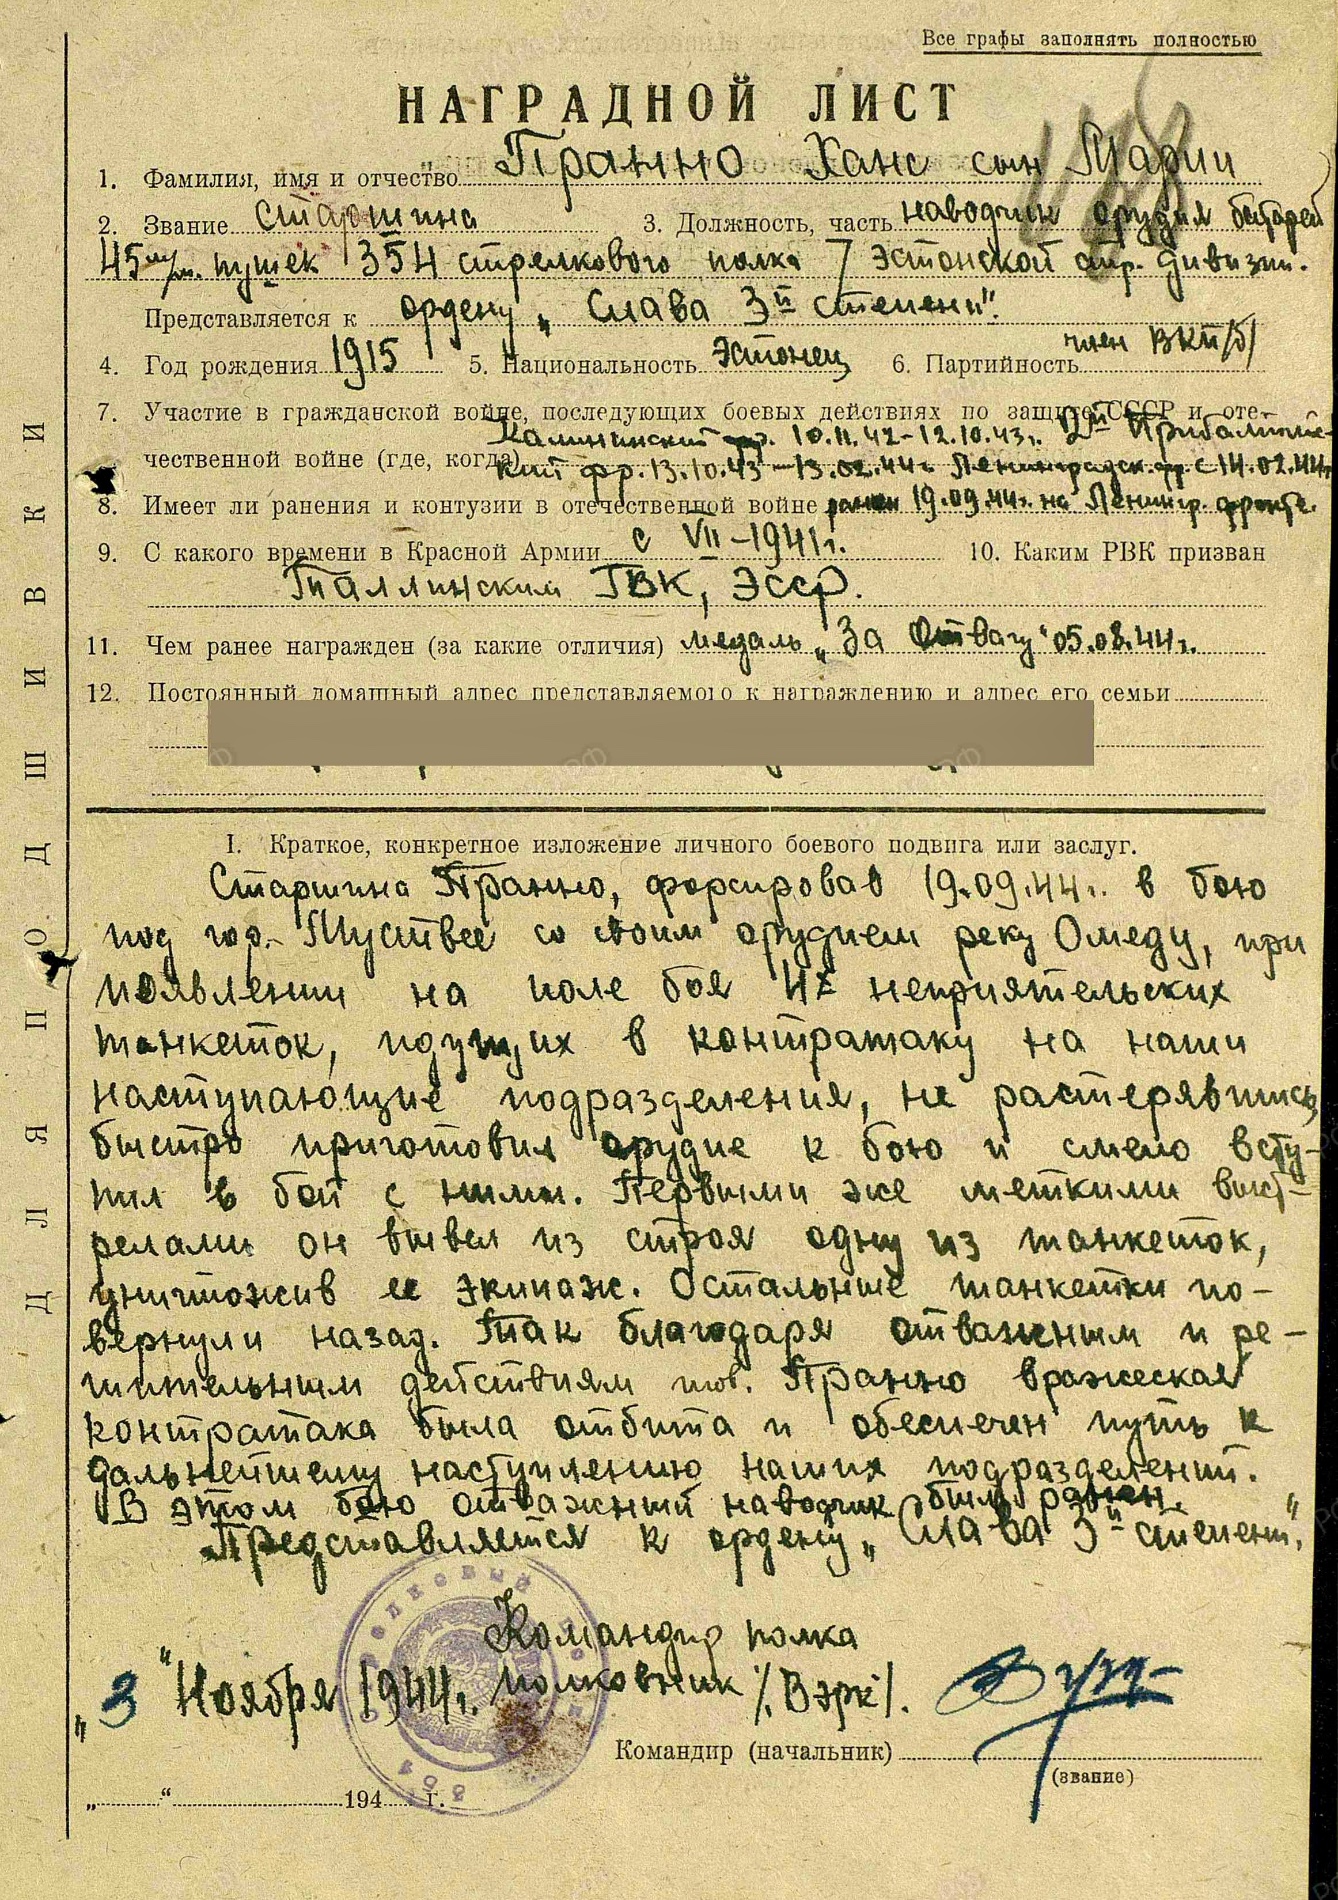 Все графы заполнять полностью
НАГРАДНОЙ ЛИСТ
1. Фамилия, имя и отчество Пранно Ханс сын Марии
2. Звание старшина 3. Должность, часть наводчик орудия батареи
45 м/м. пушек 354 стрелкового полка 7 Эстонской стр. дивизии.
Представляется к ордену „Слава 3й степени".
4. Год рождения 1915 5. Национальность Эстонец 6. Партийность член ВКП/б/
7. Участие в гражданской войне, последующих боевых действиях по защите СССР и оте-
Калининский фр. 10.11.42-12.10.43г. 2й Прибалтий-
чественной войне (где, когда) кий фр. 13.10.43-13.02.44г. Ленинградск. фр. с 14.02.44г
8. Имеет ли ранения и контузии в отечественной войне ранен 19.09.44г. на Ленингр. фронте.
9. С какого времени в Красной Армии с VII-1941г. 10. Каким РВК призван
Таллинским ГВК, ЭССР.
11. Чем ранее награжден (за какие отличия) медаль „За Отвагу" 05.08.44г.
12. Постоянный домашный адрес представляемого к награждению и адрес его семьи
I. Краткое, конкретное изложение личного боевого подвига или заслуг.
Старшина Пранно, форсировав 19.09.44г. в бою
под гор. Муствее со своим орудием реку Омеду, при
появлении на поле боя 4х неприятельских
танкеток, идущих в контратаку на наши
наступающие подразделения, не растерявшись
быстро приготовил орудие к бою и смело всту-
пил в бой с ними. Первыми же меткими выст-
релами он вывел из строя одну из танкеток,
уничтожив ее экипаж. Остальные танкетки по-
вернули назад. Так благодаря отважным и ре-
шительным действиям тов. Пранно вражеская
контратака была отбита и обеспечен путь к
дальнейшему наступлению наших подразделений.
В этом бою отважный наводчик был ранен.
Представляется к ордену „Слава 3й степени".
Командир полка
„3" Ноября 1944г. полковник /Вэрк/.
Командир (начальник)
(звание)
„ " 194 г.
354 СТРЕЛКОВЫЙ ПОЛК
ДЛЯ ПОДШИВКИ